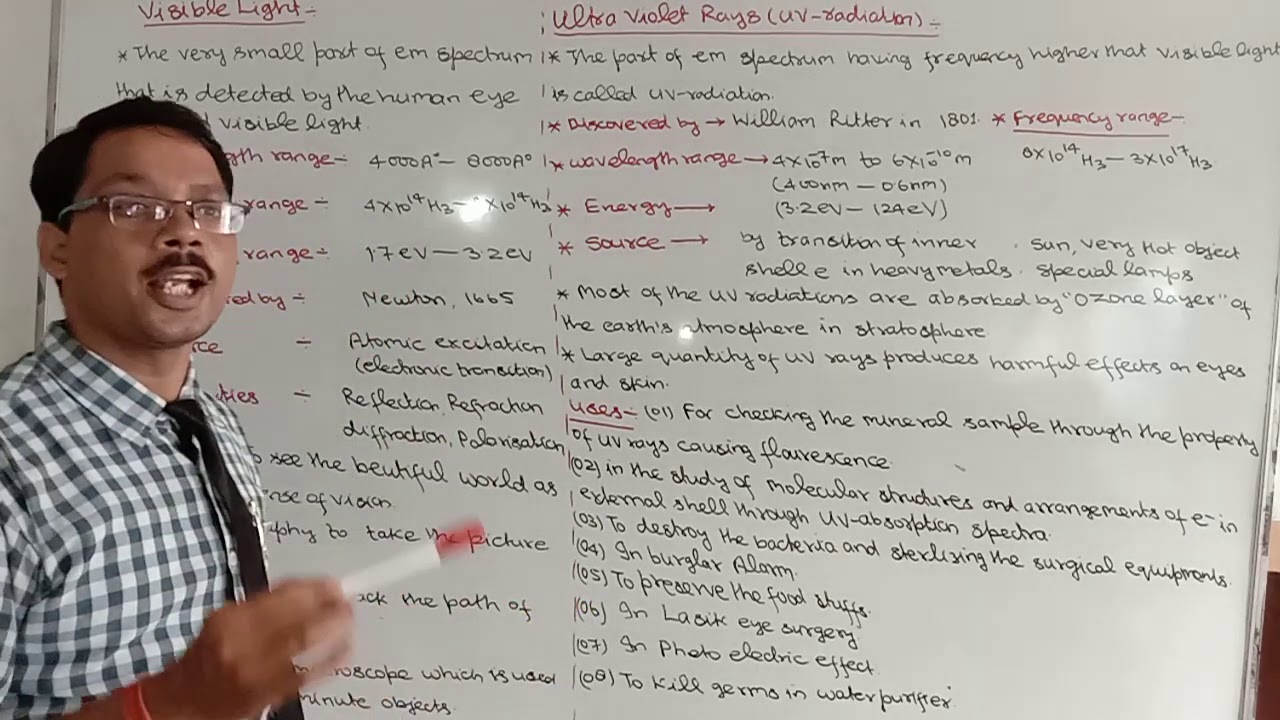 Visible Light :-
* The very small part of em spectrum
that is detected by the human eye
visible light.
range :- 4000A° - 8000A°
range ÷ 4x10¹⁴Hz - x10¹⁴Hz
range ÷ 1.7 eV - 3.2 eV
by ÷ Newton, 1665
÷ Atomic excitation
(electronic transition)
÷ Reflection, Refraction
diffraction, Polarisation
see the beutiful world as
of vision.
to take the picture
the path of
which is used
minute objects.
Ultra Violet Rays (UV-radiation) :-
* The part of em spectrum having frequency higher that visible light
is called UV-radiation.
* Discovered by → William Ritter in 1801. * Frequency range-
* wavelength range → 4x10⁻⁷m to 6x10⁻¹⁰m 8x10¹⁴Hz - 3x10¹⁷Hz
(400nm - 0.6nm)
* Energy → (3.2eV - 124eV)
* Source → by transition of inner . Sun, very Hot object
shell e in heavy metals. Special lamps
* Most of the UV radiations are absorbed by "Ozone layer" of
the earth's atmosphere in stratosphere
* Large quantity of UV rays produces harmful effects on eyes
and skin.
Uses:- (01) For checking the mineral sample through the property
of UV rays causing flourescence.
(02) in the study of molecular structures and arrangements of e⁻ in
external shell through UV-absorption spectra.
(03) To destroy the bacteria and sterlizing the surgical equipments.
(04) In burglar Alarm.
(05) To preserve the food stuffs.
(06) In Lasik eye surgery
(07) In Photo electric effect.
(08) To kill germs in water purifier.